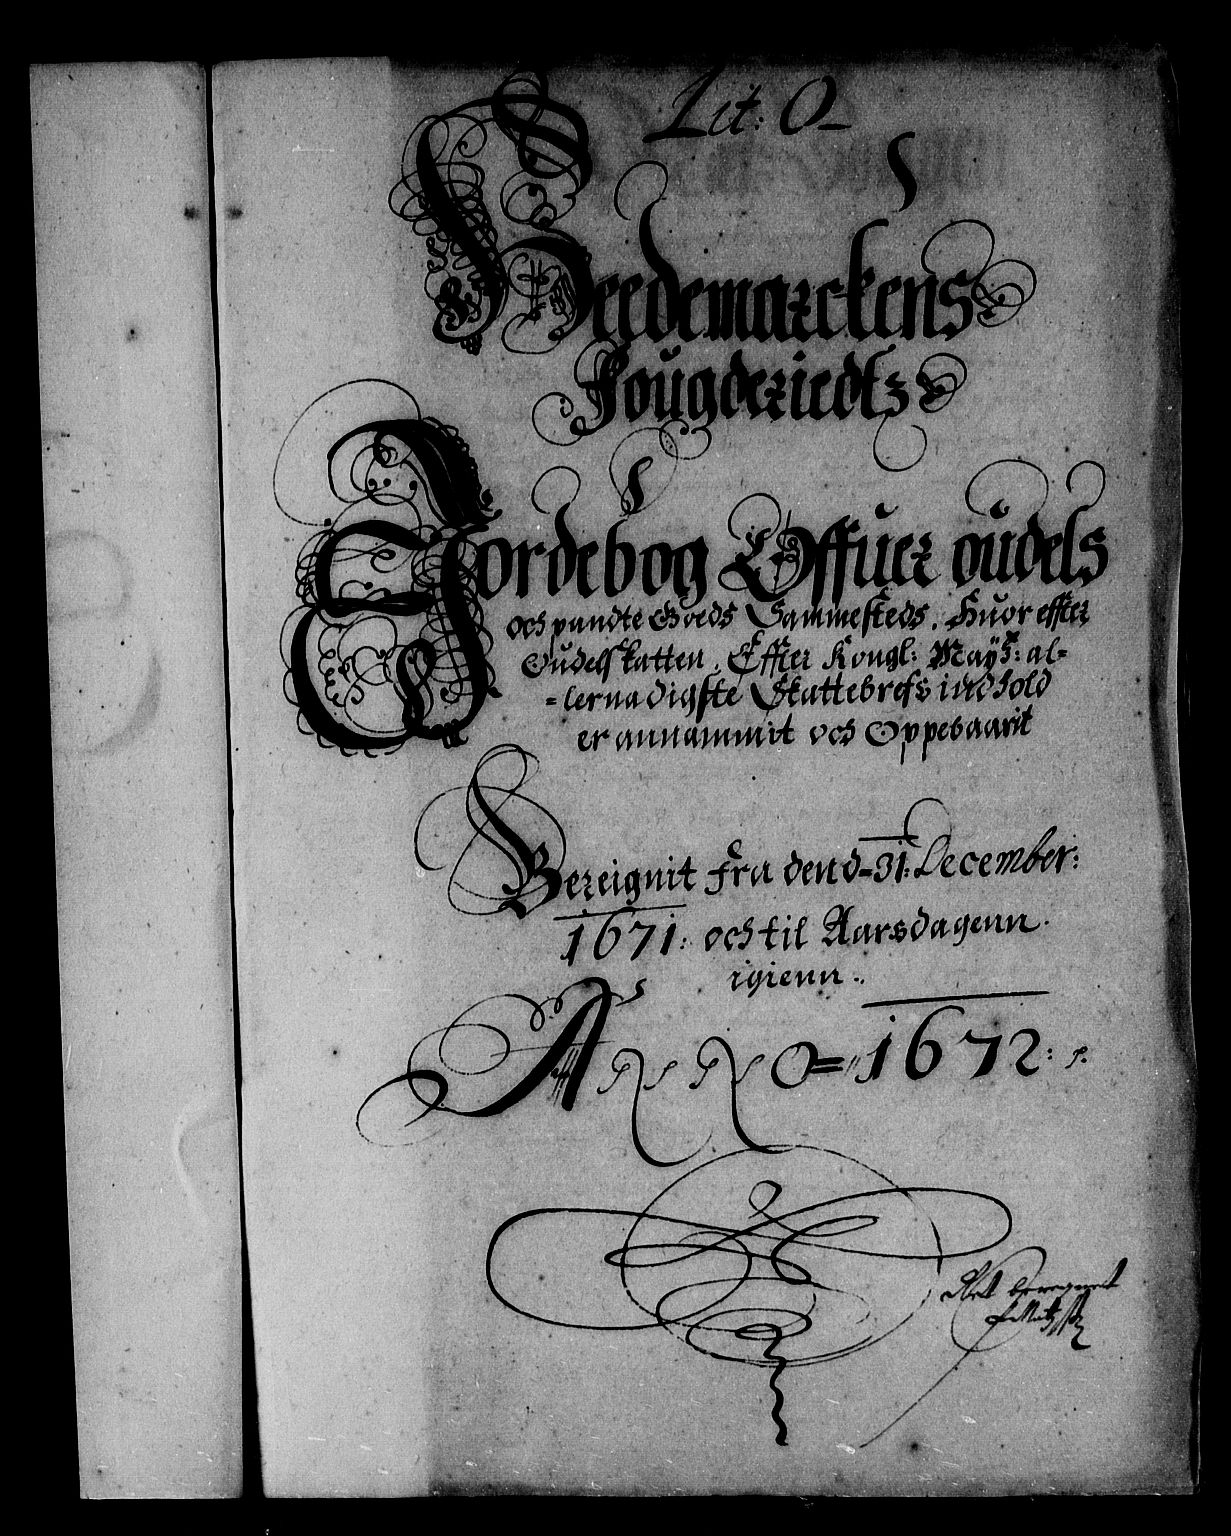 Lit: O
Heedemarckens
Fougderiedtz
Jordebog Offuer oudels
och pandte Goeds Sammesteds. Huor effter
Oudels katten. Effter Kongl: Mayᵗᶻ: al=
=lernadigste Skattebrefs indhold
er annammit och Oppebaarit
Bereignit fra dend 31: December:
1671: och til Aarsdagenn.
igienn.
ANNO= 1672:
Ret beregnet